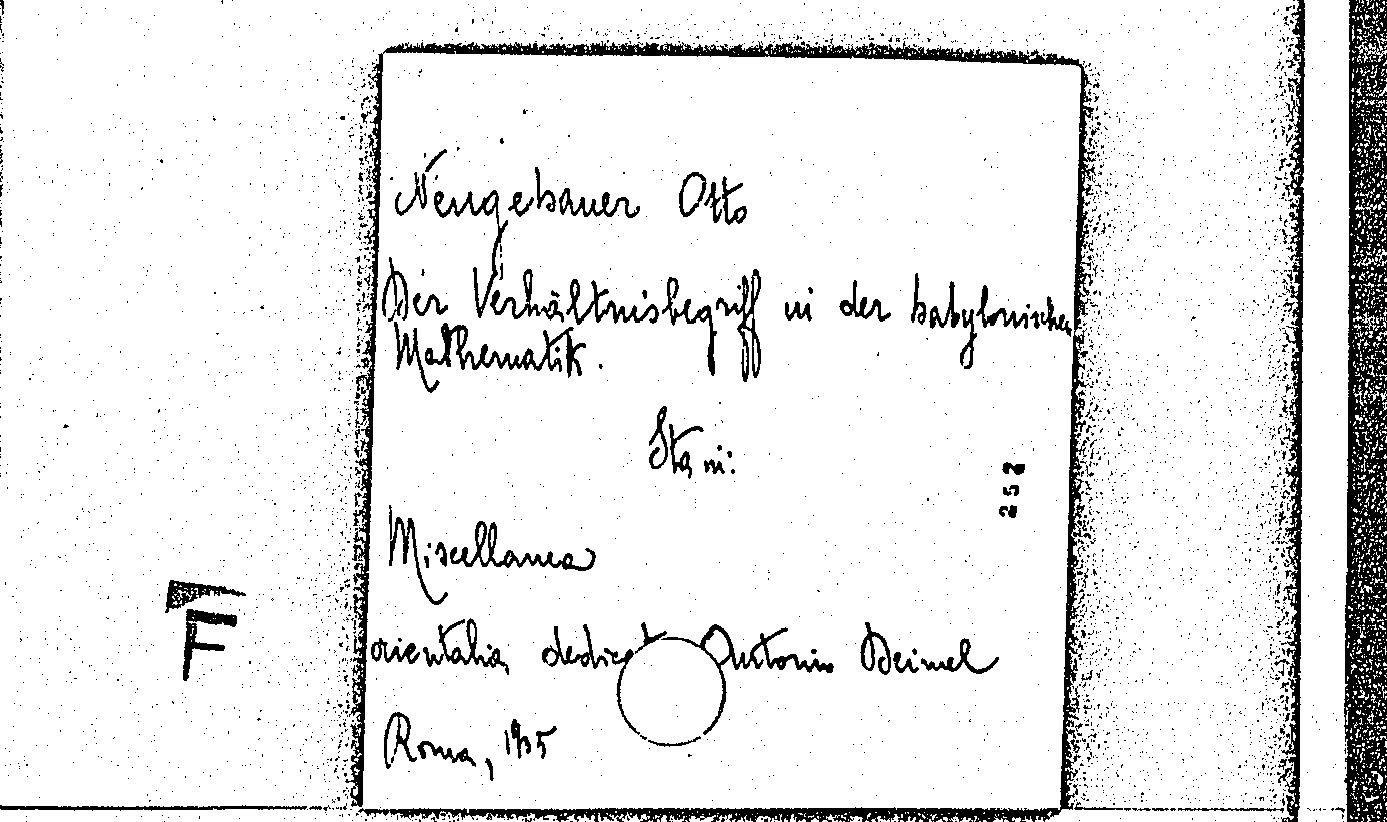 Neugebauer Otto
Der Verhältnisbegriff in der babylonischen
Mathematik.
Sta in:
Miscellanea
orientalia dedicat Antonio Deimel
Roma, 1935
252
F